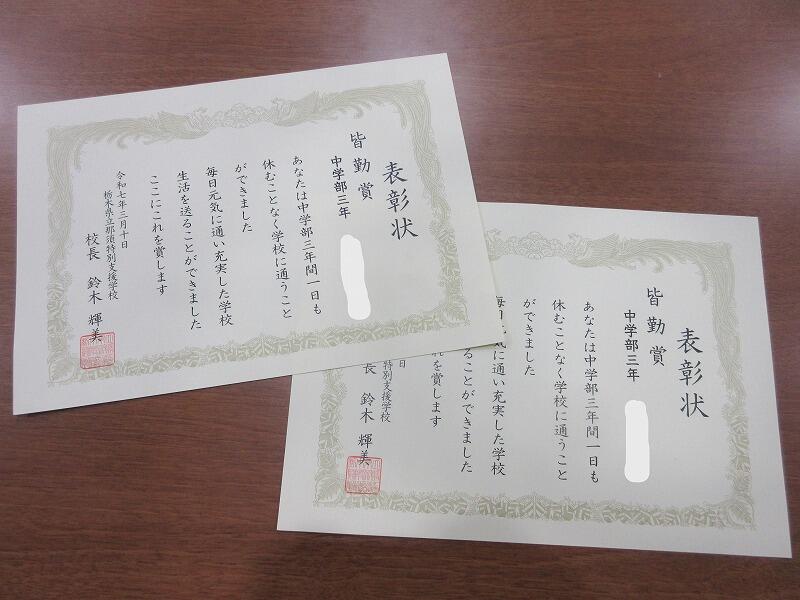 表彰状
皆勤賞
中学部三年
あなたは中学部三年間一日も
休むことなく学校に通うこと
ができました
毎日元気に通い充実した学校
生活を送ることができました
ここにこれを賞します
令和七年三月十日
栃木県立那須特別支援学校
校長 鈴木 輝美
表彰状
皆勤賞
中学部三年
あなたは中学部三年間一日も
休むことなく学校に通うこと
ができました
毎日元気に通い充実した学校
ることができました
れを賞します
日
特別支援学校
長 鈴木 輝美